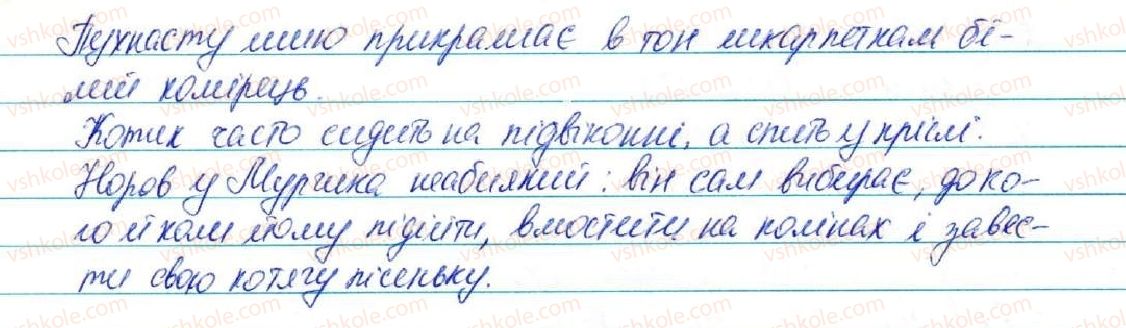 Пухнасту шию прикрашає в тон шкарпеткам бі-
лий комірець.
Котик часто сидить на підвіконні, а спить у кріслі.
Норов у Мурчика неабиякий: він сам вибирає, до ко-
го й коли йому підійти, вмостити на колінах і завес-
ти свою котячу пісеньку.